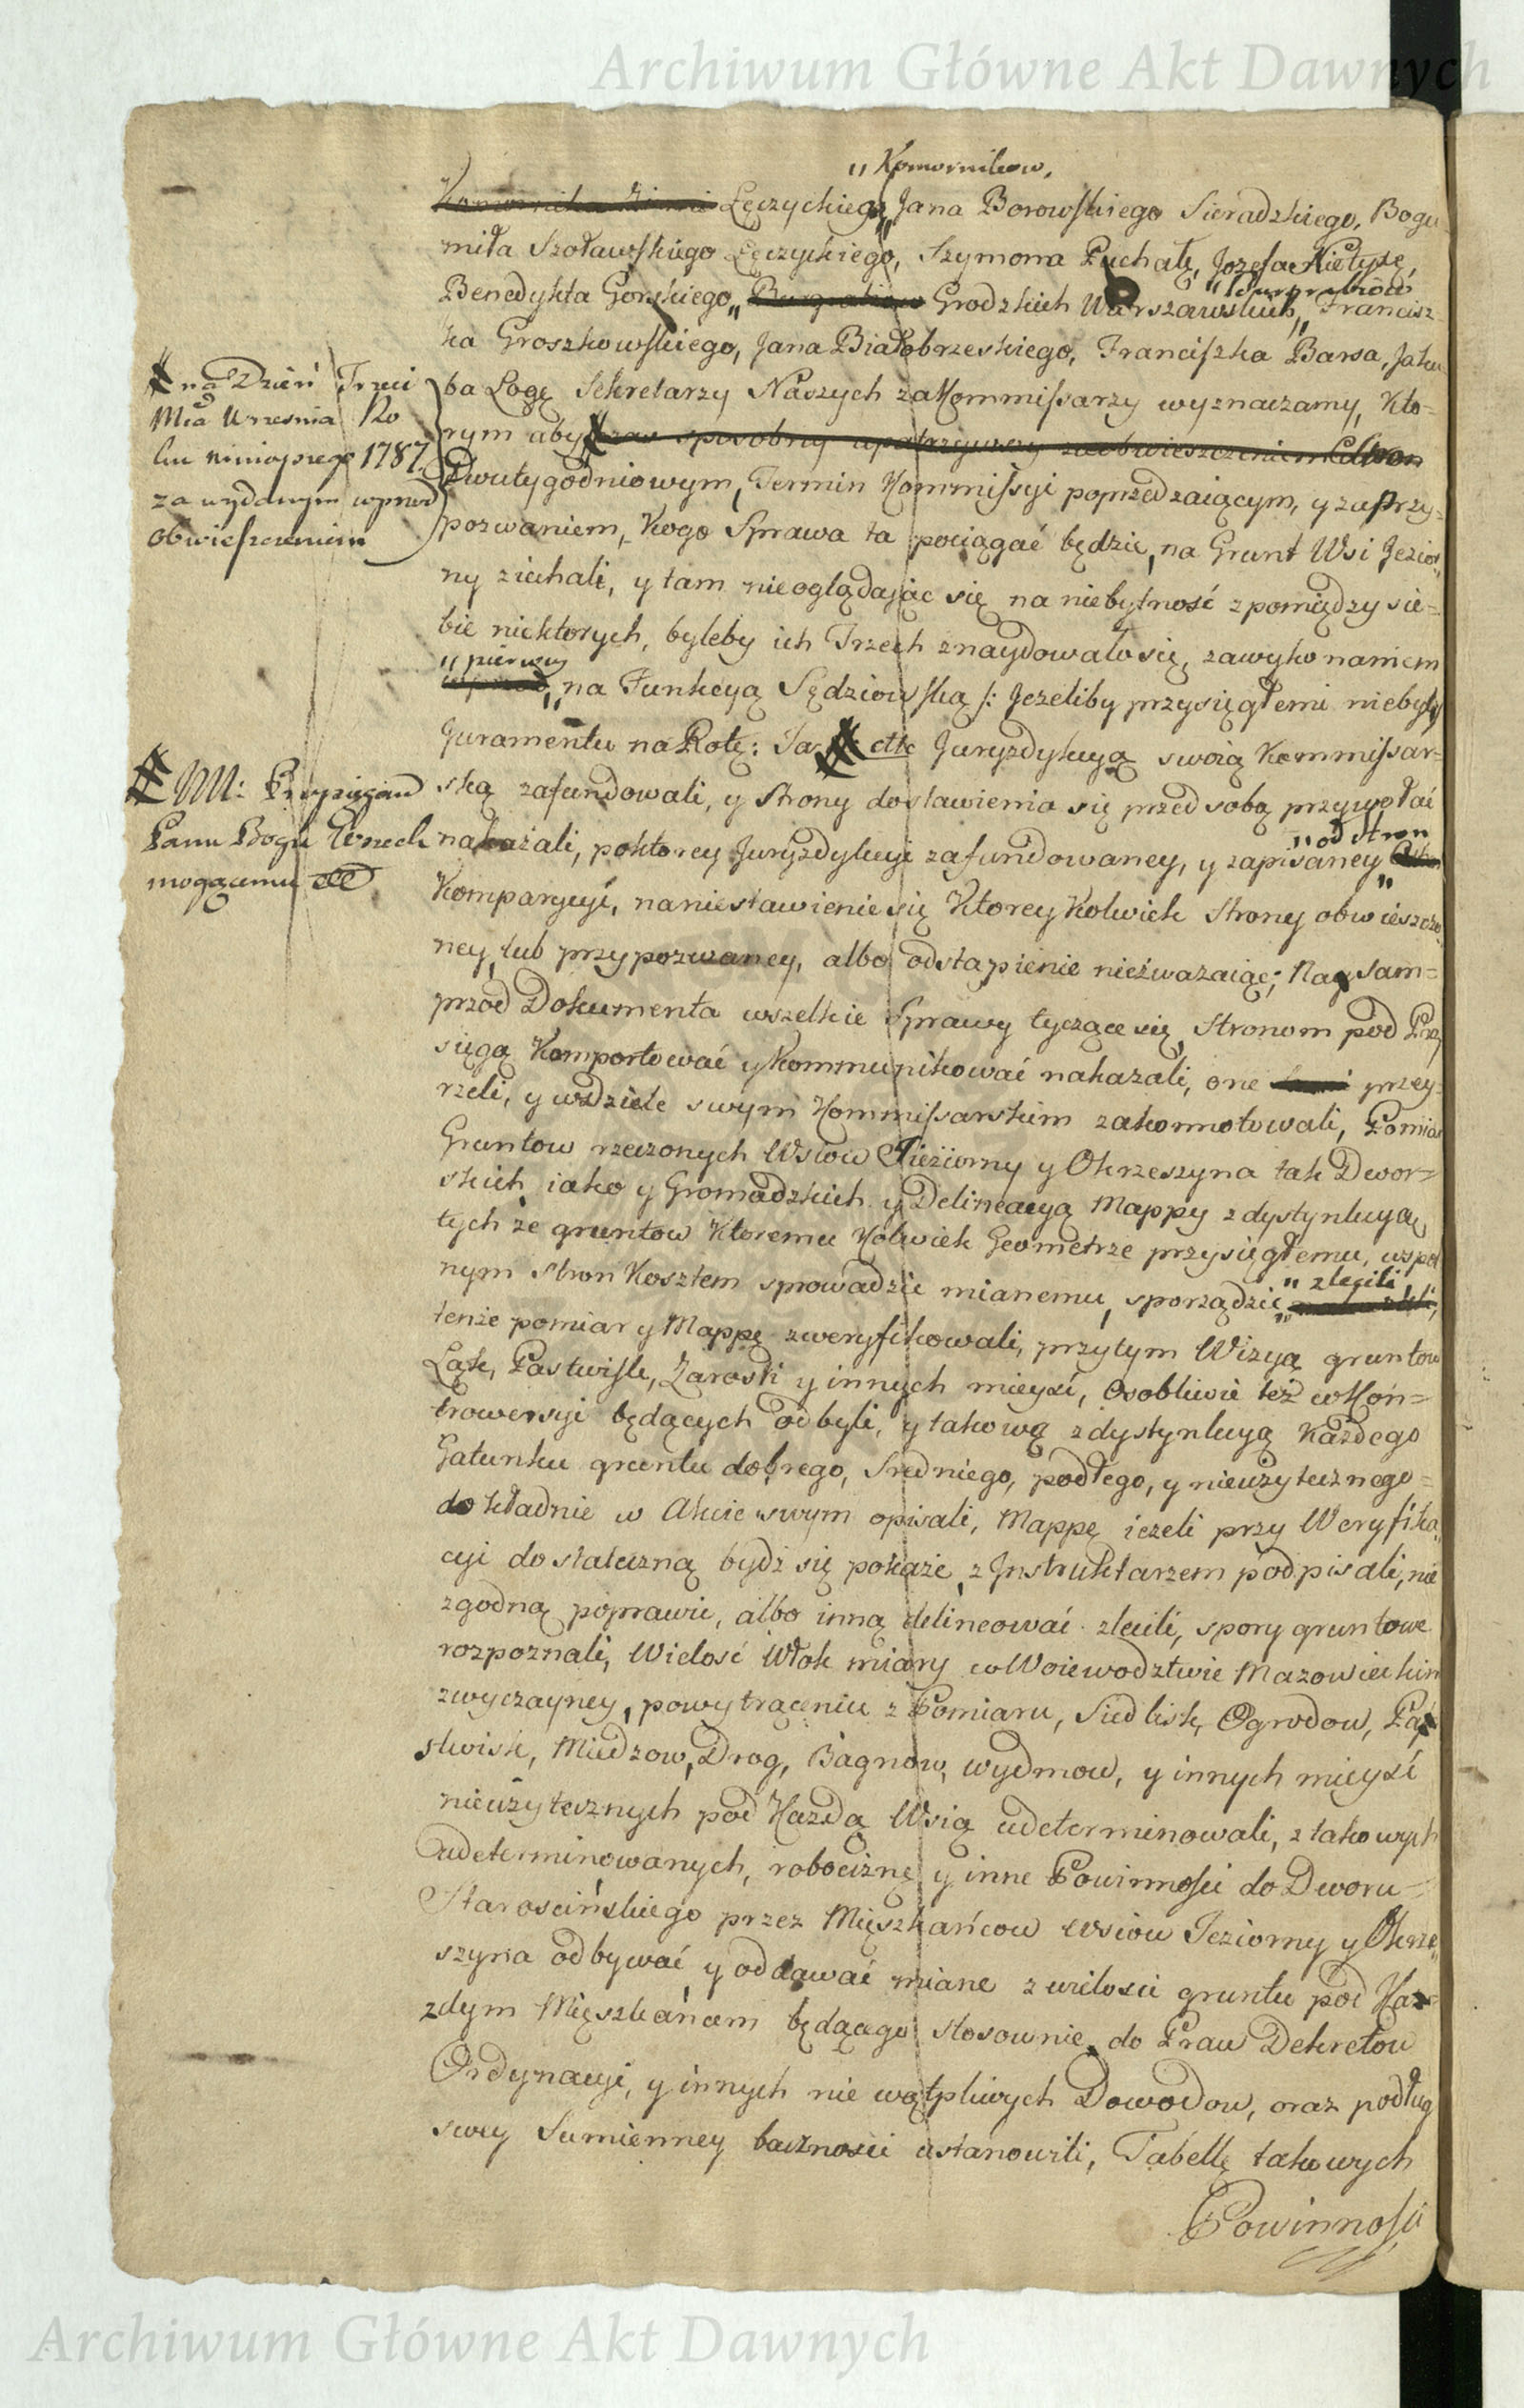 Archiwum Główne Akt Dawnych
" Komornikow,
Komornika Ziemi Łęczyckiego, Jana Borowskiego Sieradzkiego, Bogu
miła Szoławskiego Łęczyckiego, Szymona Puchałę, Jozefa Kietyzę,
Benedykta Gorskiego, Grodzkich Warszawskich, Francisz-
ka Groszkowskiego, Jana Białobrzeskiego, Franciszka Barsa, Jaku
ba Logę Sekretarzy Naszych za Kommissarzy wyznaczamy, Kto-
rym aby czas sposobny upatrzywszy za obwieszczeniem
Dwutygodniowym, Termin Kommissyi poprzedzaiącym, y za przy-
pozwaniem, Kogo Sprawa ta pociągać będzie, na Grunt Wsi Jezior
ny ziechali, y tam nieoglądaiąc się na niebytność z pomiędzy sie-
bie niektorych, byleby ich Trzech znaydowało się, za wykonaniem
" pierwey
wprzod, na Funkcyą Sędziowską /: Jezeliby przysięgłemi niebyli
Juramentu na Rotę: Ja ettc Juryzdykcyą swoią Kommissar-
ską zafundowali, y Strony do stawienia się przed sobą przywołać
nakazali, po ktorey Juryzdykcyi zafundowaney, y zapisaney
" od Stron
Komparycyi, na niestawienie się Ktorey Kolwiek Strony obwieszczo
ney, lub przypozwaney, albo odstąpienie nieuważaiąc; Nay sam-
przod Dokumenta wszelkie Sprawy tyczące się, Stronom pod Przy
sięgą Komportować y Kommunikować nakazali, one przey-
rzeli, y w dziele swym Kommissarskim zakonnotowali, Pomiar
Gruntow rzeczonych Wsiow Jeziorny y Okrzeszyna tak Dwor-
skich iako y Gromadzkich y Delineacyą Mappy z dystynkcyą
tych że gruntow Ktoremu Kolwiek Geometrze przysięgłemu, wspol
nym Stron Kosztem sprowadzić mianemu, sporządzić " zlecili
tenże pomiar y Mappę zweryfikowali, przytym Wizyą gruntow
Łąk, Pastwisk, Zarosli y innych mieysc, Osobliwie też w Kon-
trowersyi będących odbyli, y takową z dystynkcyą Każdego
Gatunku gruntu dobrego, Sredniego, podłego, y nieużytecznego
dokładnie w Akcie swym opisali, Mappę ieżeli przy Weryfika
cyi dostateczną bydź się pokaże, z Instruktarzem podpisali, nie
zgodną poprawić, albo inną delineować zlecili, spory gruntowe
rozpoznali, Wielość Włok miary w Woiewodztwie Mazowieckim
zwyczayney, po wytrąceniu z Pomiaru, Siedlisk, Ogrodow, Pa
stwisk, Miedzow, Drog, Bagnow, wydmow, y innych mieysc
nieużytecznych pod Każdą Wsią udeterminowali, z takowych
udeterminowanych, robociznę y inne Powinności do Dworu
Starościńskiego przez Mięszkańcow Wsiow Jeziorny y Okrze
szyna odbywać y oddawać miane z wielości gruntu pod Każ-
zdym Mięszkańcem będącego stosownie do Praw Dekretow
Ordynacyi, y innych nie wątpliwych Dowodow, oraz podług
swey Sumienney baczności ustanowili, Tabellę takowych
Powinności
na Dzień Trzeci
Mca Wrzesnia Ro
ku ninieyszego 1787.
za wydanym wprzod
obwieszczeniem
NN: Przysięgam
Panu Bogu Wszech
mogącemu
Archiwum Główne Akt Dawnych